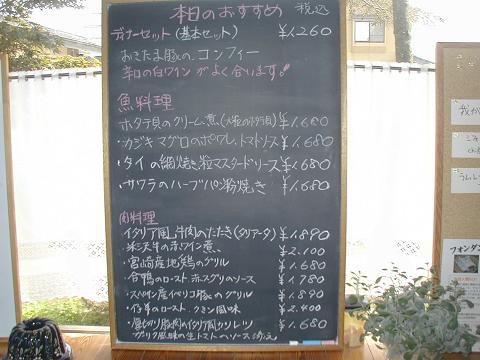 本日のおすすめ 税込
ディナーセット(基本セット) ¥1.260
おきたま豚の、コンフィー
辛口の白ワインがよく合います!
魚料理
ホタテ貝のクリーム煮(大粒のホタテ貝) ¥1.680
・カジキマグロのポワレ、トマトソース ¥1.680
・タイの網焼き、粒マスタードソース ¥1.680
・サワラのハーブパン粉焼き ¥1.680
肉料理
・イタリア風、牛肉のたたき(タリアータ) ¥1.890
・米沢牛の赤ワイン煮 ¥2.100
・宮崎産地鶏のグリル ¥1.680
・合鴨のロースト、赤スグリのソース ¥1.780
・スペイン産イベリコ豚のグリル ¥1.890
・仔羊のロースト、クミン風味 ¥2.400
・厚切り豚肉のイタリア風カツレツ ¥1.680
ガーリック風味の生トマトのソース添え
フォンダン